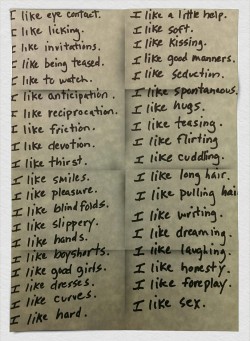 I like eye contact.
I like licking.
I like invitations.
I like being teased.
I like to watch.
I like anticipation.
I like reciprocation.
I like friction.
I like devotion.
I like thirst.
I like smiles.
I like pleasure.
I like blindfolds.
I like slippery.
I like hands.
I like boyshorts.
I like good girls.
I like dresses.
I like curves.
I like hard.
I like a little help.
I like soft.
I like kissing.
I like good manners.
I like seduction.
I like spontaneous.
I like hugs.
I like teasing.
I like flirting
I like cuddling.
I like long hair.
I like pulling hai
I like writing.
I like dreaming.
I like laughing.
I like honesty.
I like foreplay.
I like sex.